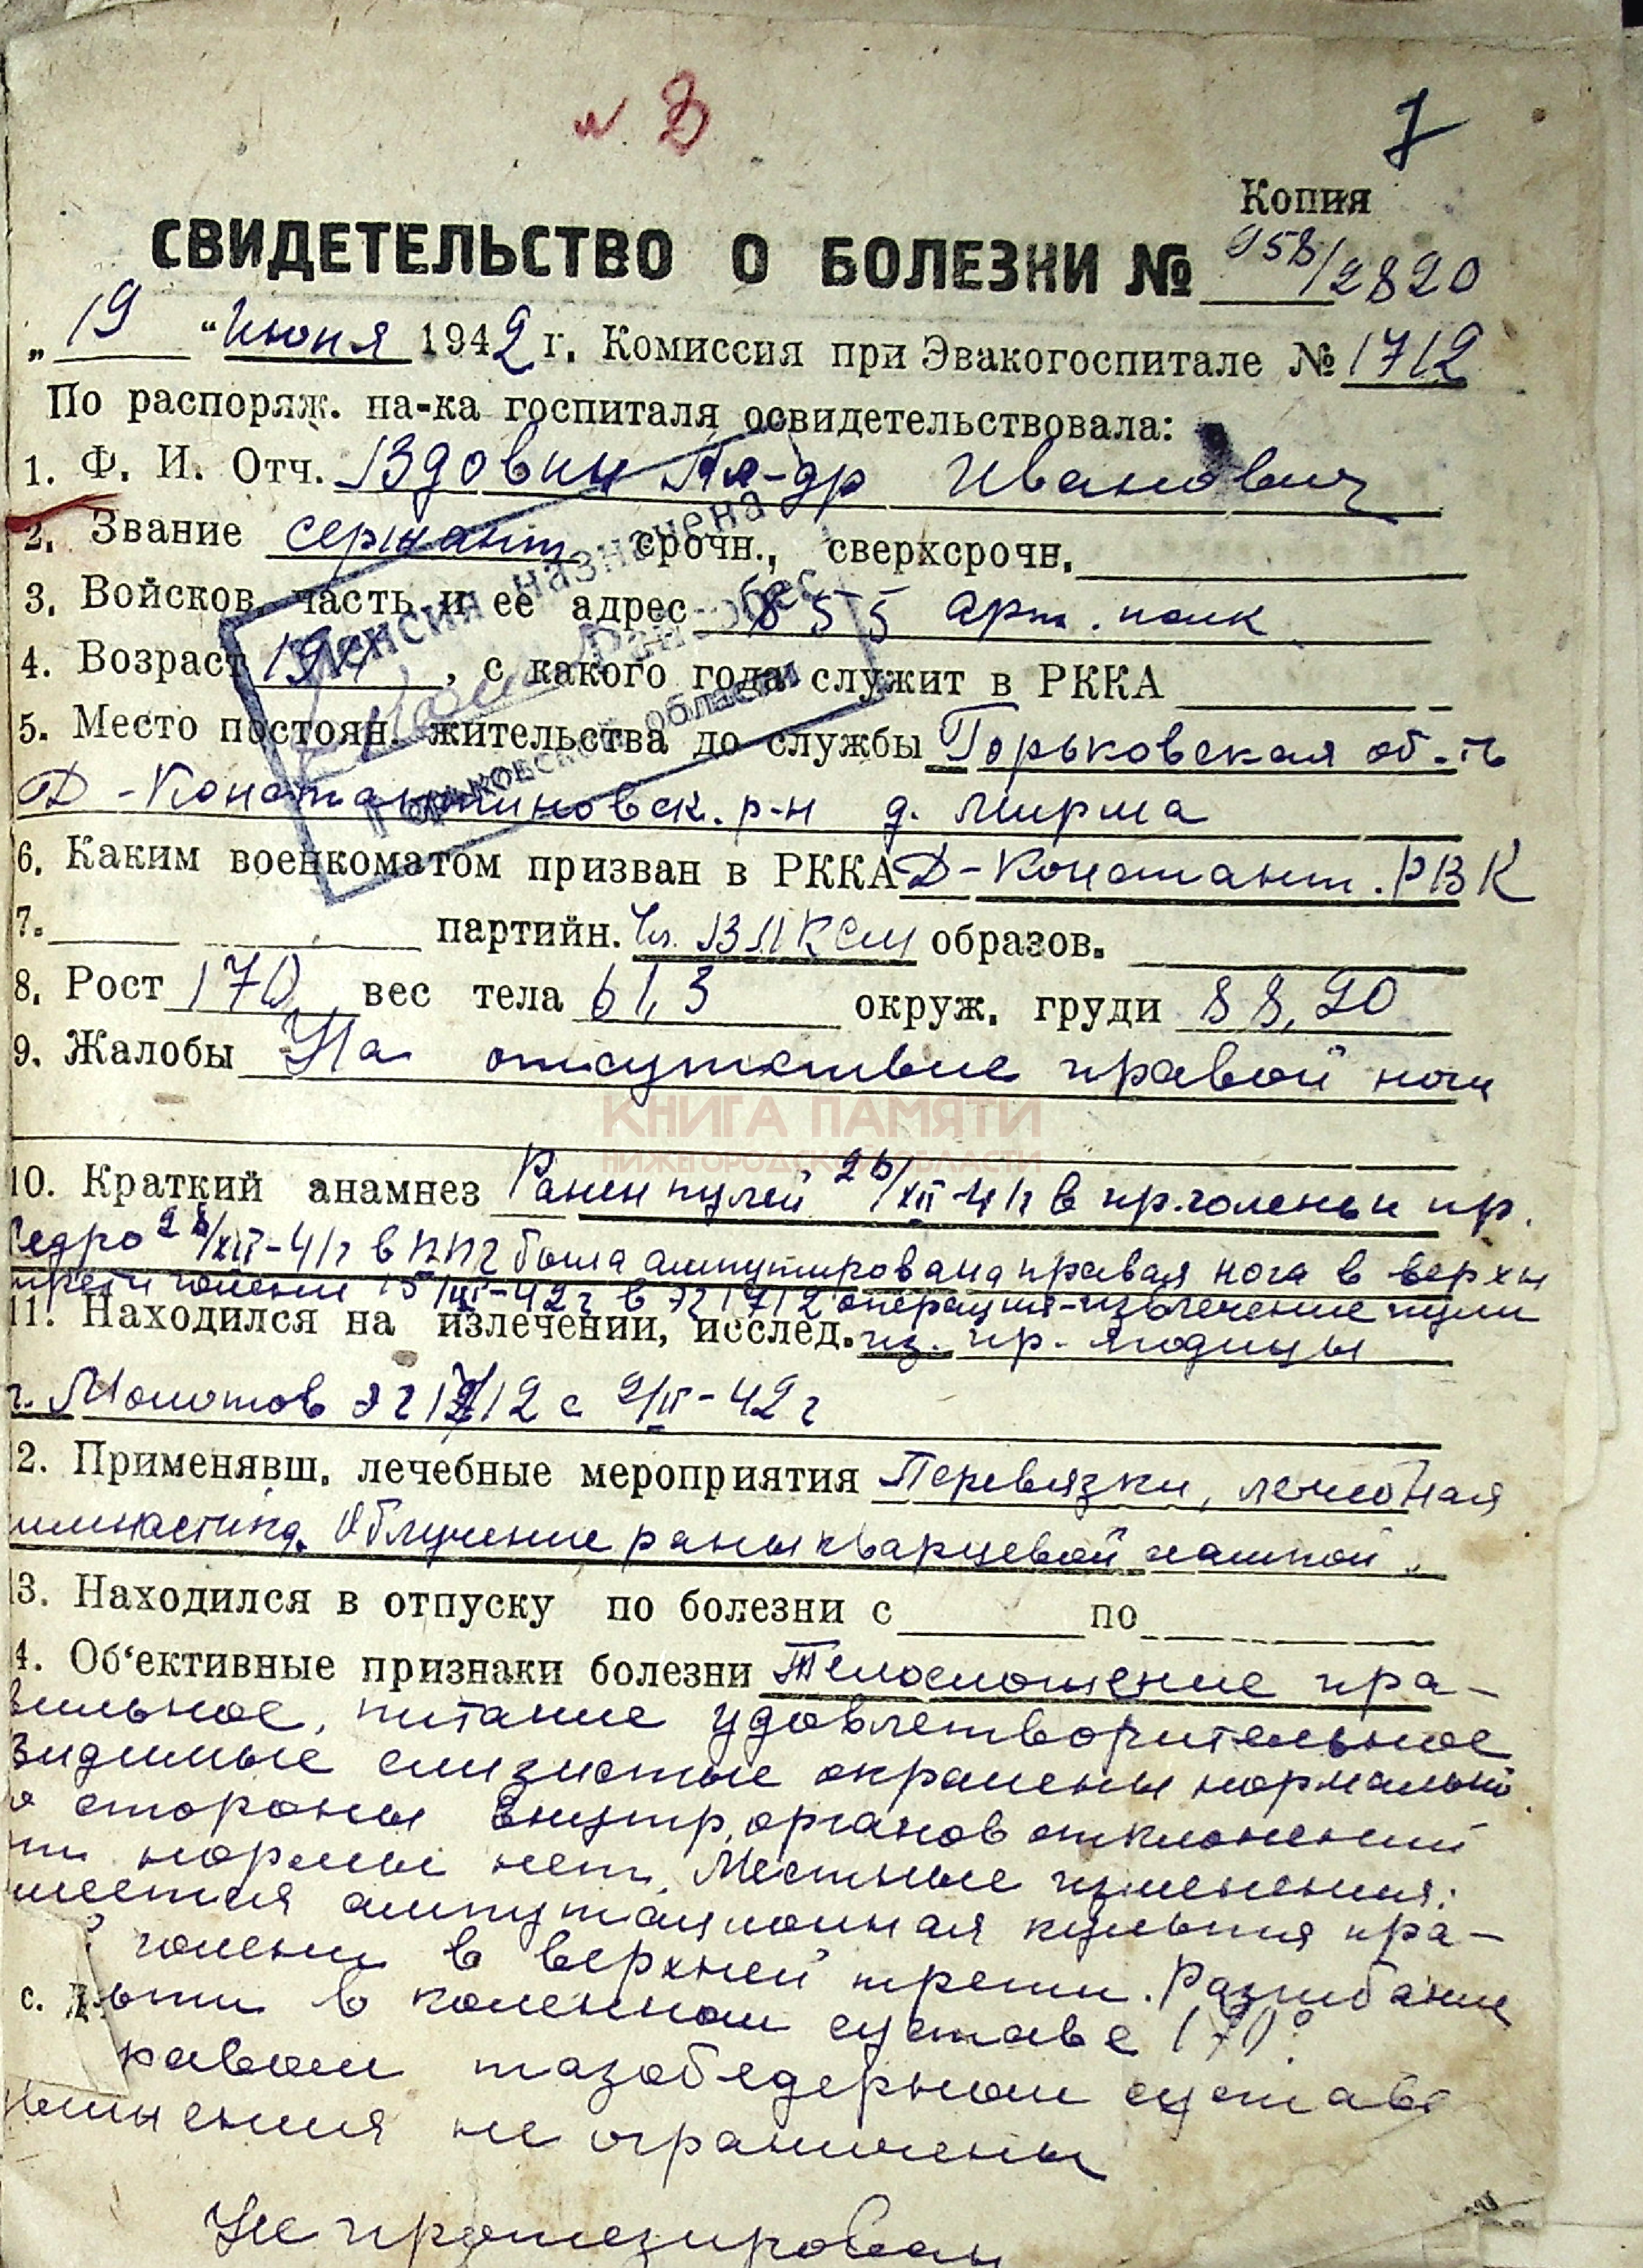 7
Копия
СВИДЕТЕЛЬСТВО О БОЛЕЗНИ № 958/2820
„19“ Июня 1942 г. Комиссия при Эвакогоспитале № 1712
По распоряж. на-ка госпиталя освидетельствовала:
1. Ф. И. Отч. Вдовин Ал-др Иванович
2. Звание сержант срочн., сверхсрочн.
3. Войсков. часть и ее адрес 855 арт. полк
4. Возраст , с какого года служит в РККА
5. Место постоян. жительства до службы Горьковская об-ть
Д-Константиновск. р-н д. Мирма
Пенсия назначена
Горьковской области
6. Каким военкоматом призван в РККА Д-Констант. РВК
7. партийн. Чл. ВЛКСМ образов.
8. Рост 170 вес тела 61,3 окруж. груди 88,90
9. Жалобы На отсутствие правой ноги
КНИГА ПАМЯТИ
НИЖЕГОРОДСКОЙ ОБЛАСТИ
10. Краткий анамнез Ранен пулей 26/XII-41г в пр. голень и пр.
бедро 28/XII-41г в ППГ была ампутирована правая нога в верхн
трети голени 15/III-42г в ЭГ 1712 операция-извлечение пули
11. Находился на излечении, исслед. из пр. ягодицы
г. Молотов ЭГ 1712 с 2/II-42г
2. Применявш. лечебные мероприятия Перевязки, лечебная
имнастика. Облучение раны кварцевой лампой.
3. Находился в отпуску по болезни с по
4. Об'ективные признаки болезни Телосложение пра-
вильное, питание удовлетворительное
Видимые слизистые окрашены нормально
о стороны внутр. органов отклонений
от нормы нет. Местные изменения:
имеется ампутационная культя пра-
голени в верхней трети. Разгибание
с. ьти в коленном суставе 170°.
равом тазобедренном суставе
не ограничены
Не протезирован